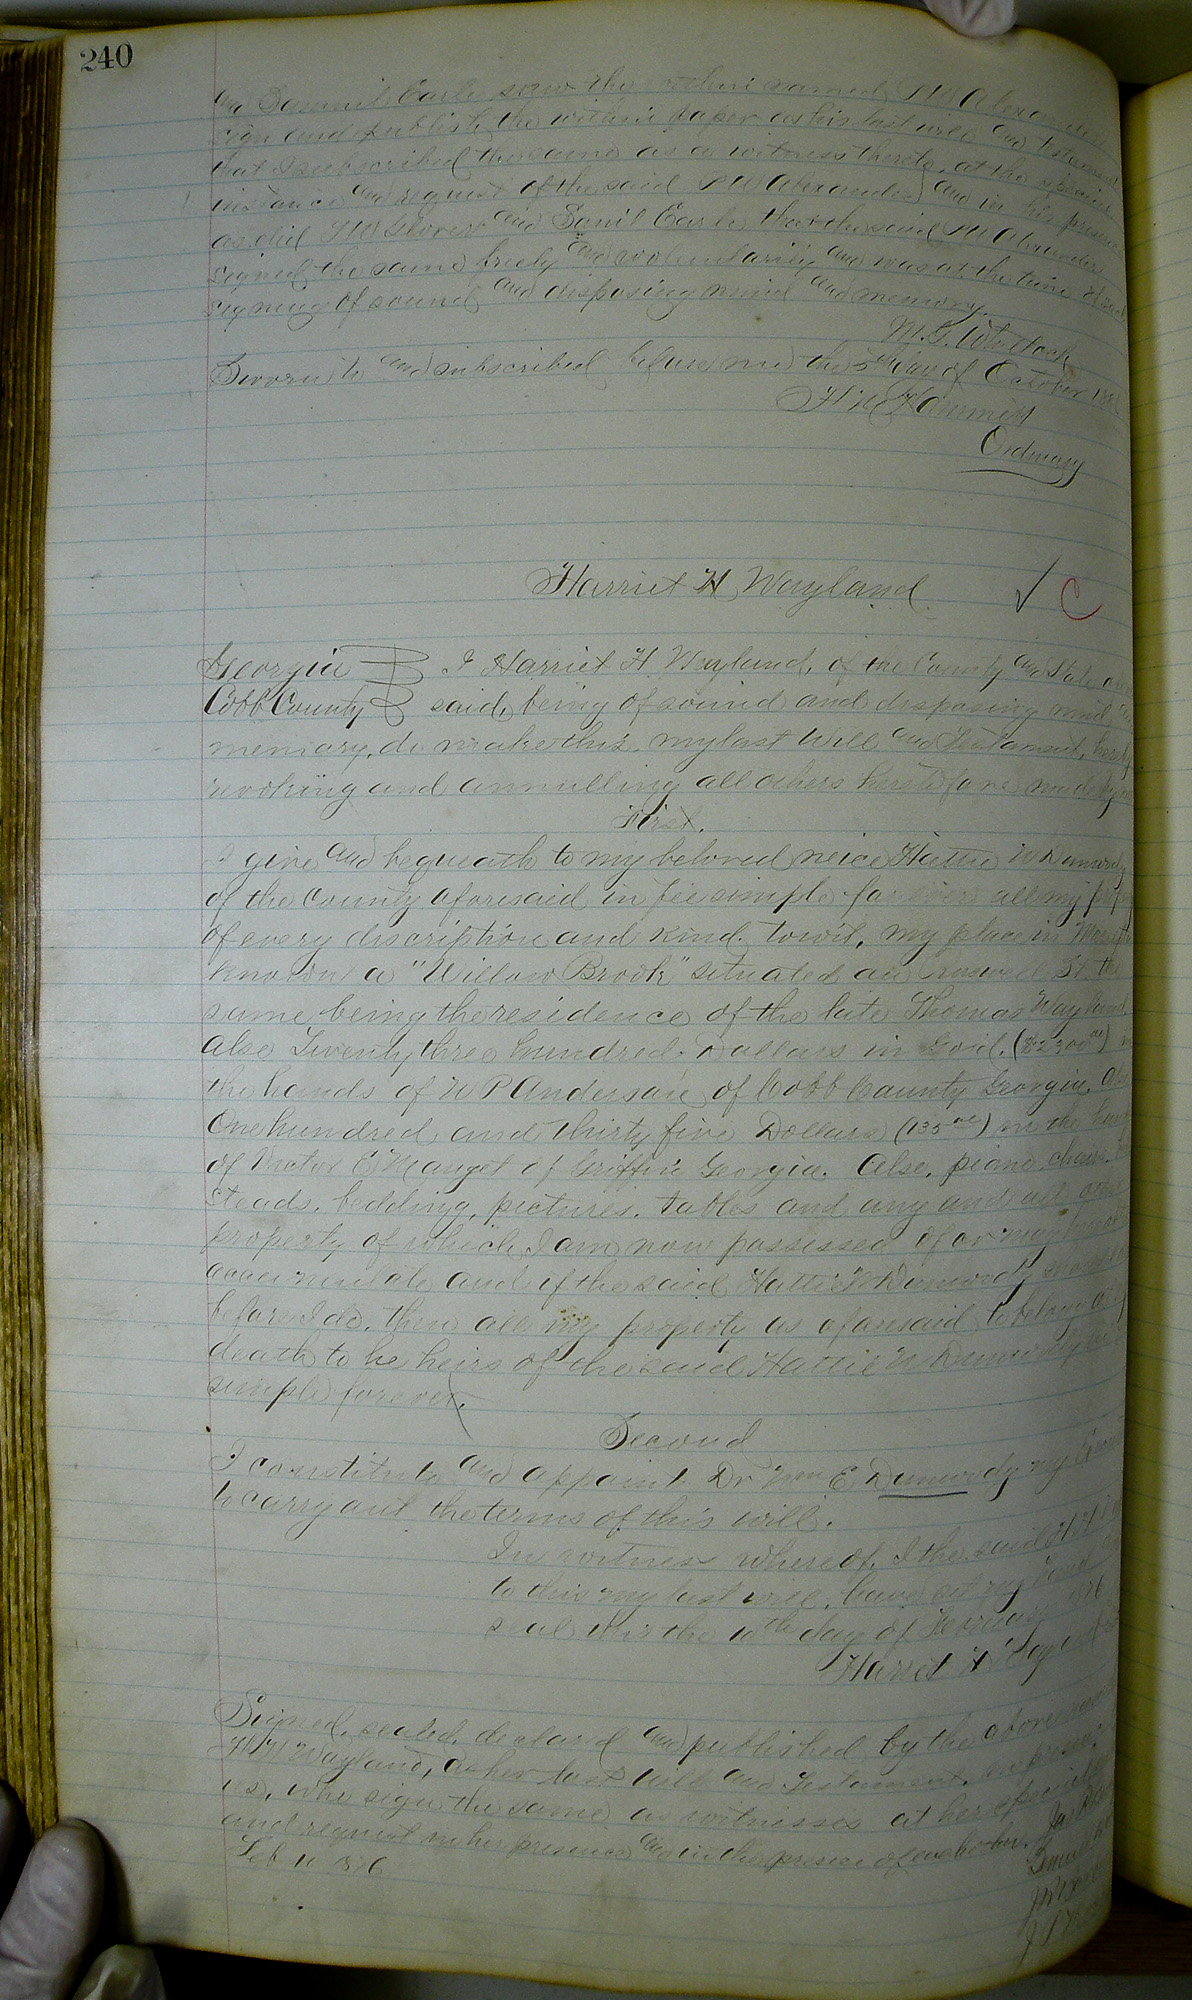 240
and Samuel Earle saw the within named P W Alexander
sign and publish the within paper as his last will and testament
that I subscribed the same as a witness thereto, at the special
instance and request of the said P W Alexander and in his presence
as did J W Glover and Saml Earle that the said P W Alexander
signed the same freely and voluntarily and was at the time of said
signing of sound and disposing mind and memory.
M. G. Whitlock
Sworn to and subscribed before me the 5th day of October
H M Hammett
Ordinary
Harriet H Wayland
Georgia I Harriet H Wayland, of the County and State afore
Cobb County said, being of sound and disposing mind and
memory, do make this, my last Will and Testament, hereby
revoking and annulling all others heretofore made by me
First.
I give and bequeath to my beloved neice Hattie W Dunwody
of the County aforesaid, in fee simple forever all my property
of every discription and kind. towit, my place in Marietta
known a "Willow Brook" situated on Roswell St, the
same being the residence of the late Thomas Wayland
also Twenty three hundred. Dollars in Gold. ($2300 00) in
the hands of W P Anderson of Cobb County Georgia. Also
One hundred and thirty five Dollars (135 00) in the hands
of Victor E Manget of Griffin Georgia. Also, piano chairs,
steads, bedding, pictures, tables and any and all other
property of which I am now possessed of or may
accumulate and if the said Hattie W Dunwody
before I do, then all my property as aforesaid to belong
death to he heirs of the said Hattie W Dunwody
simple forever.
Second
I constitute and appoint Dr Wm E Dunwody my
to carry out the terms of this will.
In witness whereof, I the said H H
to this my last will, have set my hand
seal this the 10th day of February 1876
Harriet H Wayland
Signed, sealed, declared and published by the above
H H Wayland, as her last Will and Testament, in presence
us, who sign the same as witnesses at her especial
and request in her presence and in the presence of each other.
Feb 10 1876